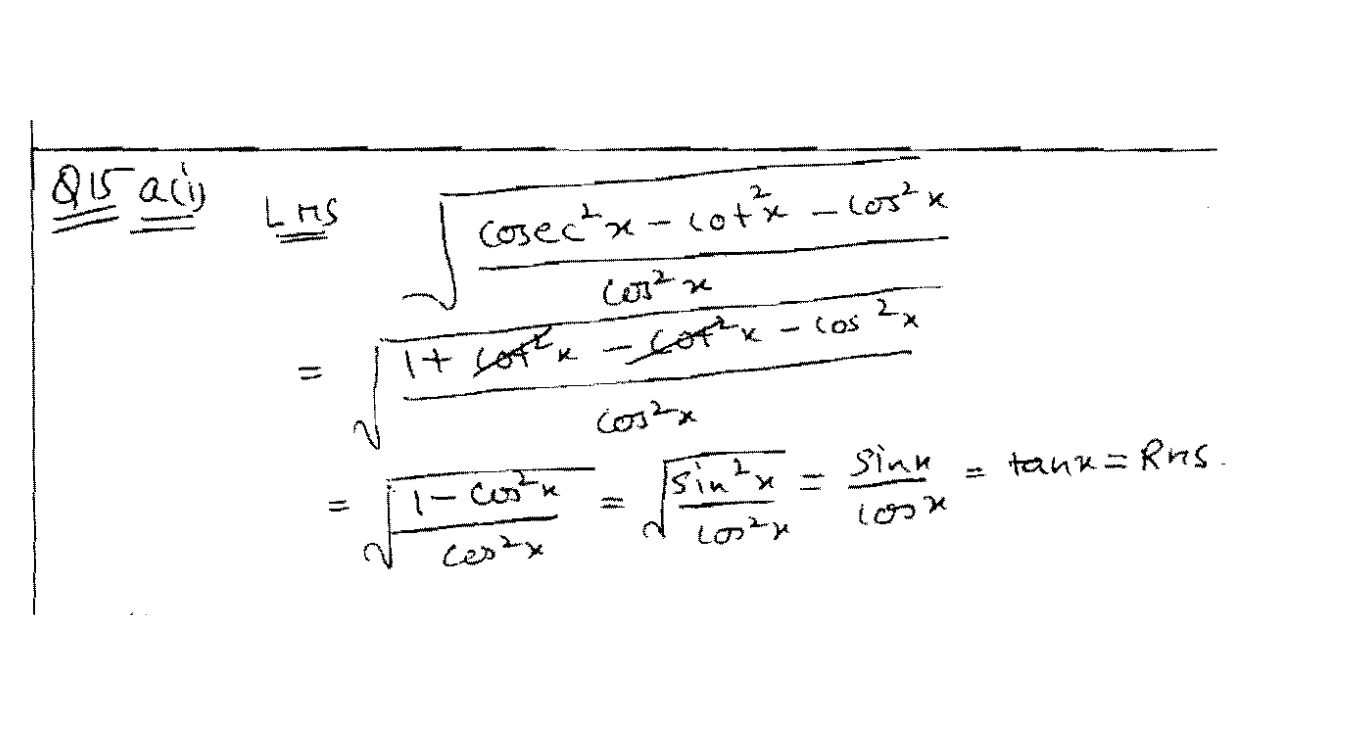 Q15 a(i) LHS √((cosec²x − cot²x − cos²x) / cos²x)
= √((1 + cot²x − cot²x − cos²x) / cos²x)
= √((1 − cos²x) / cos²x) = √(sin²x / cos²x) = sinx / cosx = tanx = RHS.